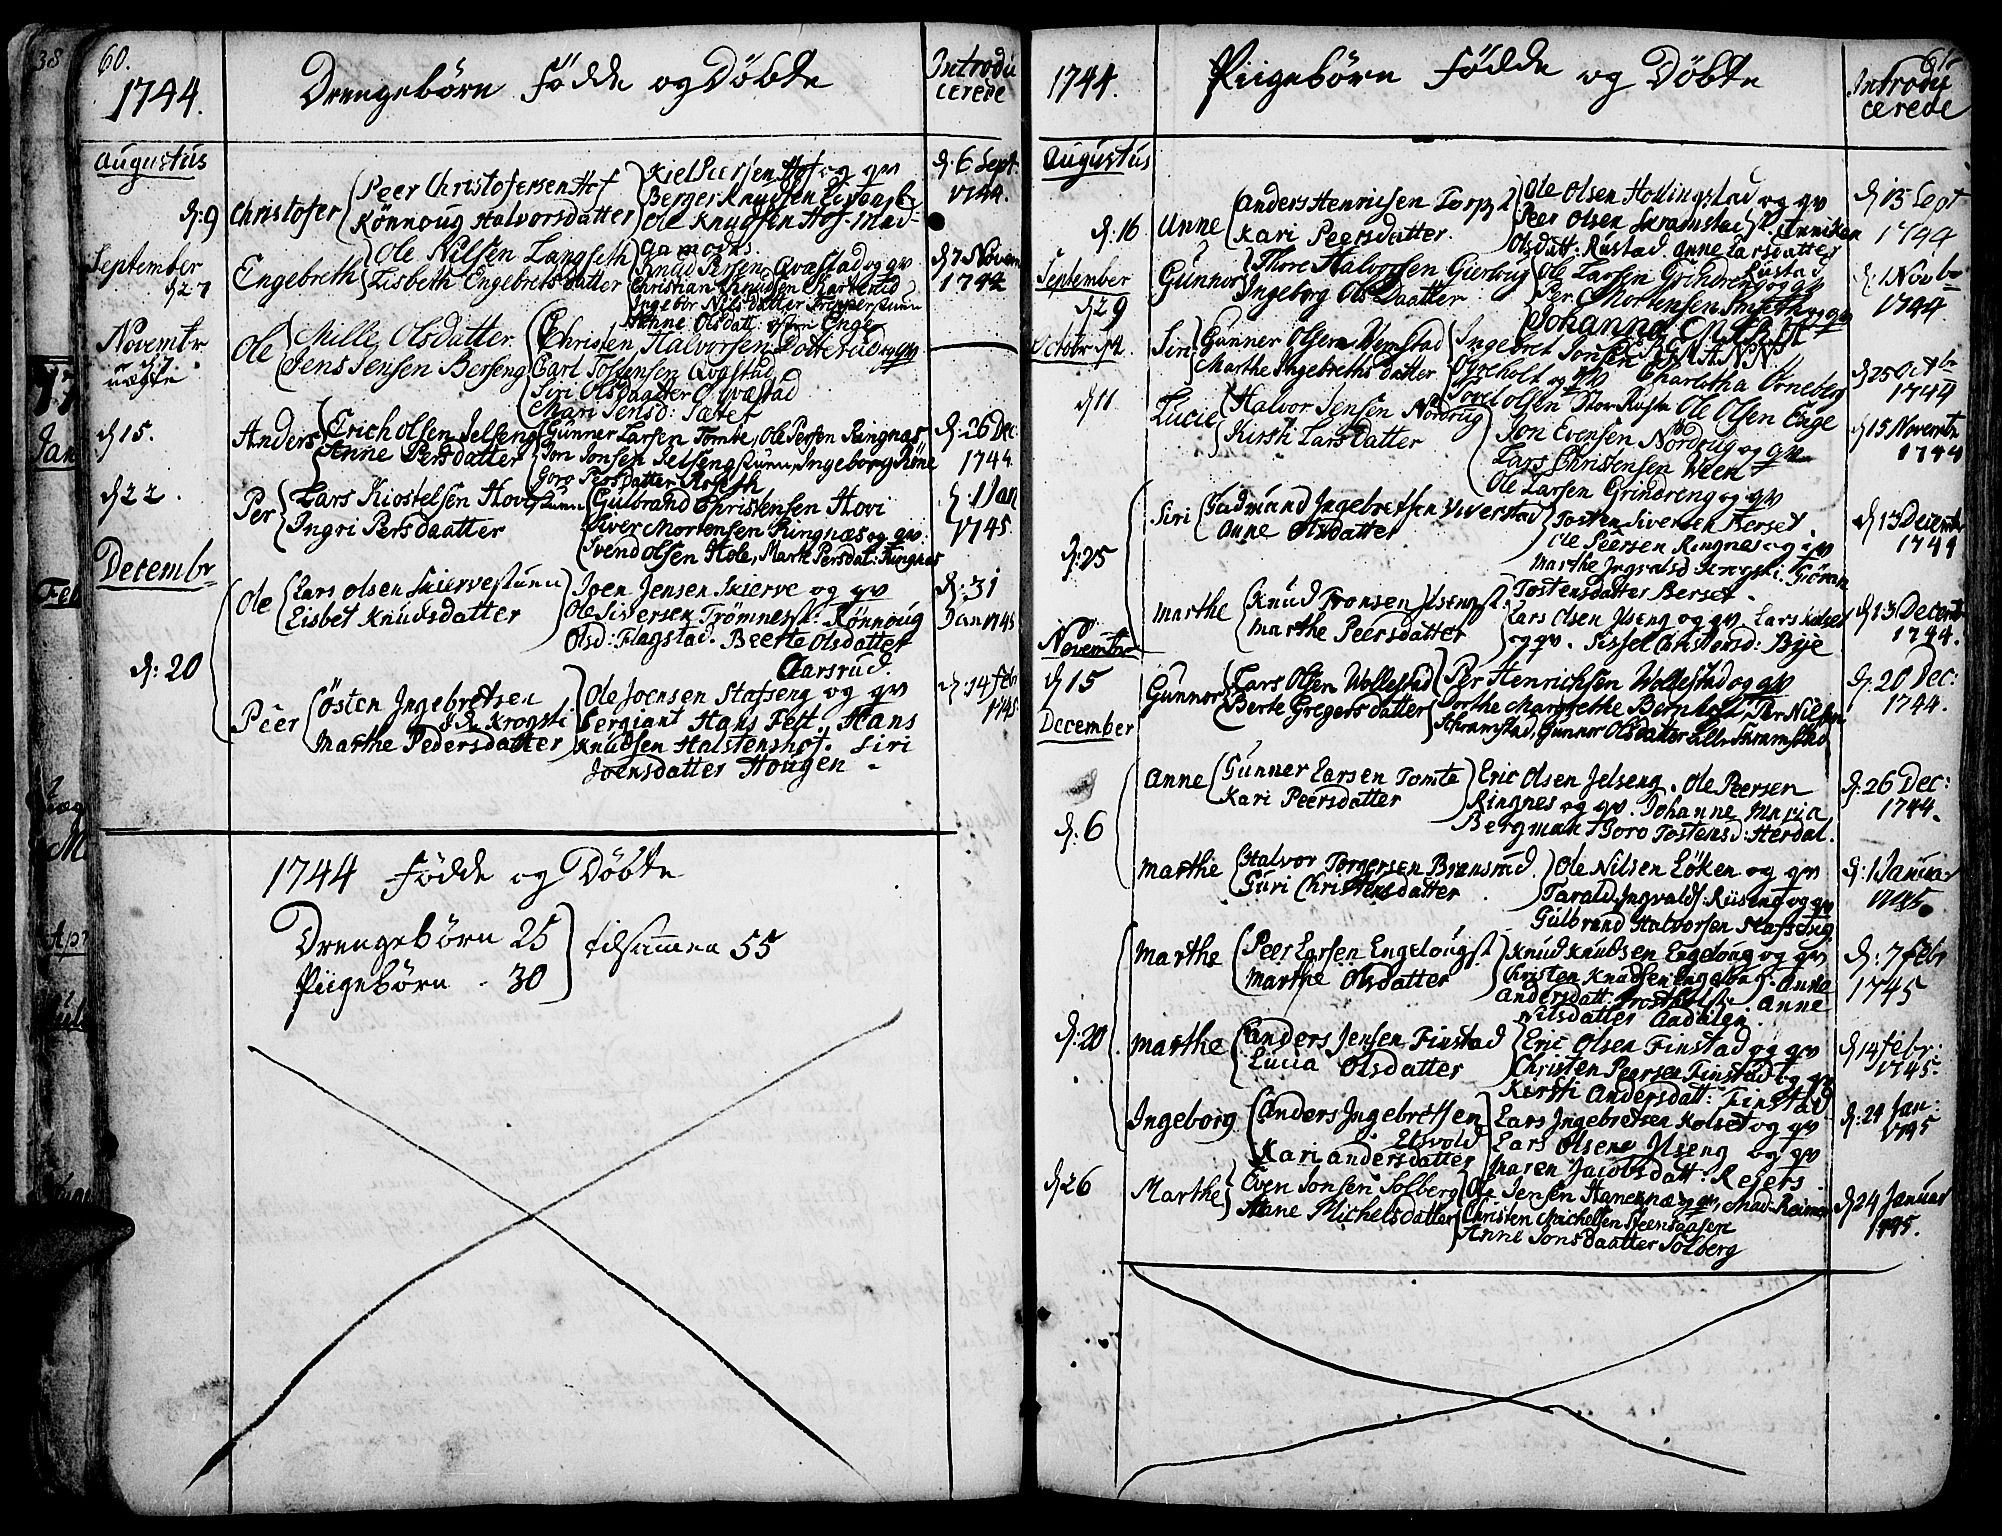 60.
1744.
Drengebörn Födde og Döbte
Introdu
cerede
Augustus
d: 9 Christofer
Peer Christofersen Hof
Rönnoug Halvorsdatter
Kiel Hof og qv
Berger Knudsen
Ole Knudsen Hof. Mad-
d: 6 Sept
1744.
September
d 27
Engebreth
Ole Nilsen Langseth
Lisbeth Engebretsdatter
Knud Persen Qvastad og qv
Christian Knudsen
Ingebor Nilsdatter
Anne Olsdatt: Enge
d 7 Novem
1744
Novembr
uægte
Ole
Mille Olsdatter
Jens Jensen Berseng
Christen Halvorsen og qv
Carl Tostensen Qvastad
Siri Olsdaatter Qvæstad
Mari Jensd: Sætef
d 15.
Anders
Erich Olsen Jelseng
Anne Persdatter
Gunner Larsen Tomte, Ole Persen Ringnæs,
Jon Jonsen Jelseng Ingeborg
Goro Persdatter
d: 26 Dec
1744
d 22.
Per
Lars Hovi
Ingri Persdaatter
Gulbrand Christensen Hovi
Siver Mortensen Ringnæs og qv
Svend Olsen Hole, Marte Persdat: Ringnæs
d: 1 Jan
1745
Decembr
d: 20
Ole
Lars Olsen
Lisbet Knudsdatter
Iven Jensen Skierve og qv
Ole Siversen Rönnoug
Olsd: Flagstad. Beerte Olsdatter
Aarsrud.
d: 31
Jan 1745
Peer
Östen Ingebretsen
Krogsti
Marthe Pedersdatter
Ole Joensen Stafseng og qv
Sergiant Hans Fest. Hans
Knudsen Halstenshof. Siri
Joensdatter Hougen.
d: 14 Feb
1745
1744 Födde og Döbte
Drengebörn 25
Piigebörn. 30
tilsammen 55
61.
1744.
Piigebörn Födde og Döbte
Introdu
cerede
Augustus
d: 16
Anne
Anders Henricsen Torp
Kari Peersdatter.
Ole Olsen Hollingstad og qv
Peer Olsen Skramstad Anniken
Olsdatt: Rustad. Anne Larsdatter
Rustad
d 13 Sept
1744
September
d 29
Gunnor
Thore Halvorsen Gierloug
Ingeborg Ols Daatter
Ole Larsen Grindereng og qv
Per Mortensen Smith og qv
d: 1 Novbr
1744
Octobr d 4.
Siri
Gunner Olsen Vemstad
Marthe Ingebrethsdatter
Ingebret Jonsen
og qv Charlotha Orneberg
d 25 Octbr
1744
d 11
Lucie
Halvor Jensen Nordrug
Kirsti Larsdatter
Ole Olsen Enge
Jon Evensen Nordrug og qv
Lars Christensen Ween
Ole Larsen Grindreng og qv
d 15 Novembr
1744
d: 25
Siri
Gudmund Ingebretsen
Anne Olsdatter
Tosten Siversen Berset.
Ole Peersen Ringnes og qv
Marthe Göran
Tostensdatter Berset.
d 13 Decembr
1744
Marthe
Knud
Marthe Peersdatter
Lars Olsen Jlseng og qv Lars
og qv. Sissel Christensd: Byje
d 13 Decemb
1744.
Novembr
d 15
Gunnor
Lars Olsen Wollestad
Berte Gregersdatter
Per Henrichsen Wollestad og qv
Dorthe Margrethe Per Nilsen
Skramstad, Gunnor Olsdatter Skramstad
d: 20 Dec:
1744.
December
d: 6
Anne
Gunner Larsen Tomte
Kari Peersdatter
Eric Olsen Jelseng. Ole Peersen
Ringnes og qv. Johanne Maria
Bergman Goro Tostensd: Herdal.
d: 26 Dec:
1744.
Marthe
Halvor Torgersen Brensrud.
Guri Christensdatter
Ole Nilsen Löken og qv
Tarald Ingvalds: Riiseng og qv
Gulbrand Halvorsen Stafseng
d: 1 Januar
1745
d: 20
Marthe
Peer Larsen Engeloug
Marthe Olsdatter
Knud Knudsen Engeloug og qv
Christen Knudsen Anna
Andersdatt: Anne
Nilsdatter Aadalen.
d: 7 Febr
1745
Marthe
Anders Jensen Finstad
Lucia Olsdatter
Eric Olsen Finstad og qv
Christen Peersen Finstad og qv
Kirsti Andersdatt: Finstad
d 14 febr:
1745.
Ingeborg
Anders Ingebretsen
Etsvold
Kari Andersdatter
Lars Ingebretsen Kolset og qv
Lars Olsen Jlseng og qv
Maren Jacobsdatt: Reiers
d: 24 Jan:
1745
d 26
Marthe
Even Jonsen Solberg
Anne Michelsdatter
Ole Jensen Hamernæs og qv, Mad: Reimer
Christen Michelsen Steensaasen
Anne Jonsdaatter Solberg
d 24 Januar
1745.